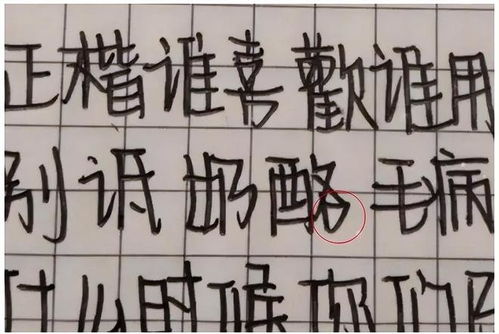 正楷谁喜歡谁用
别诋奶酪毛病
什么时候你们